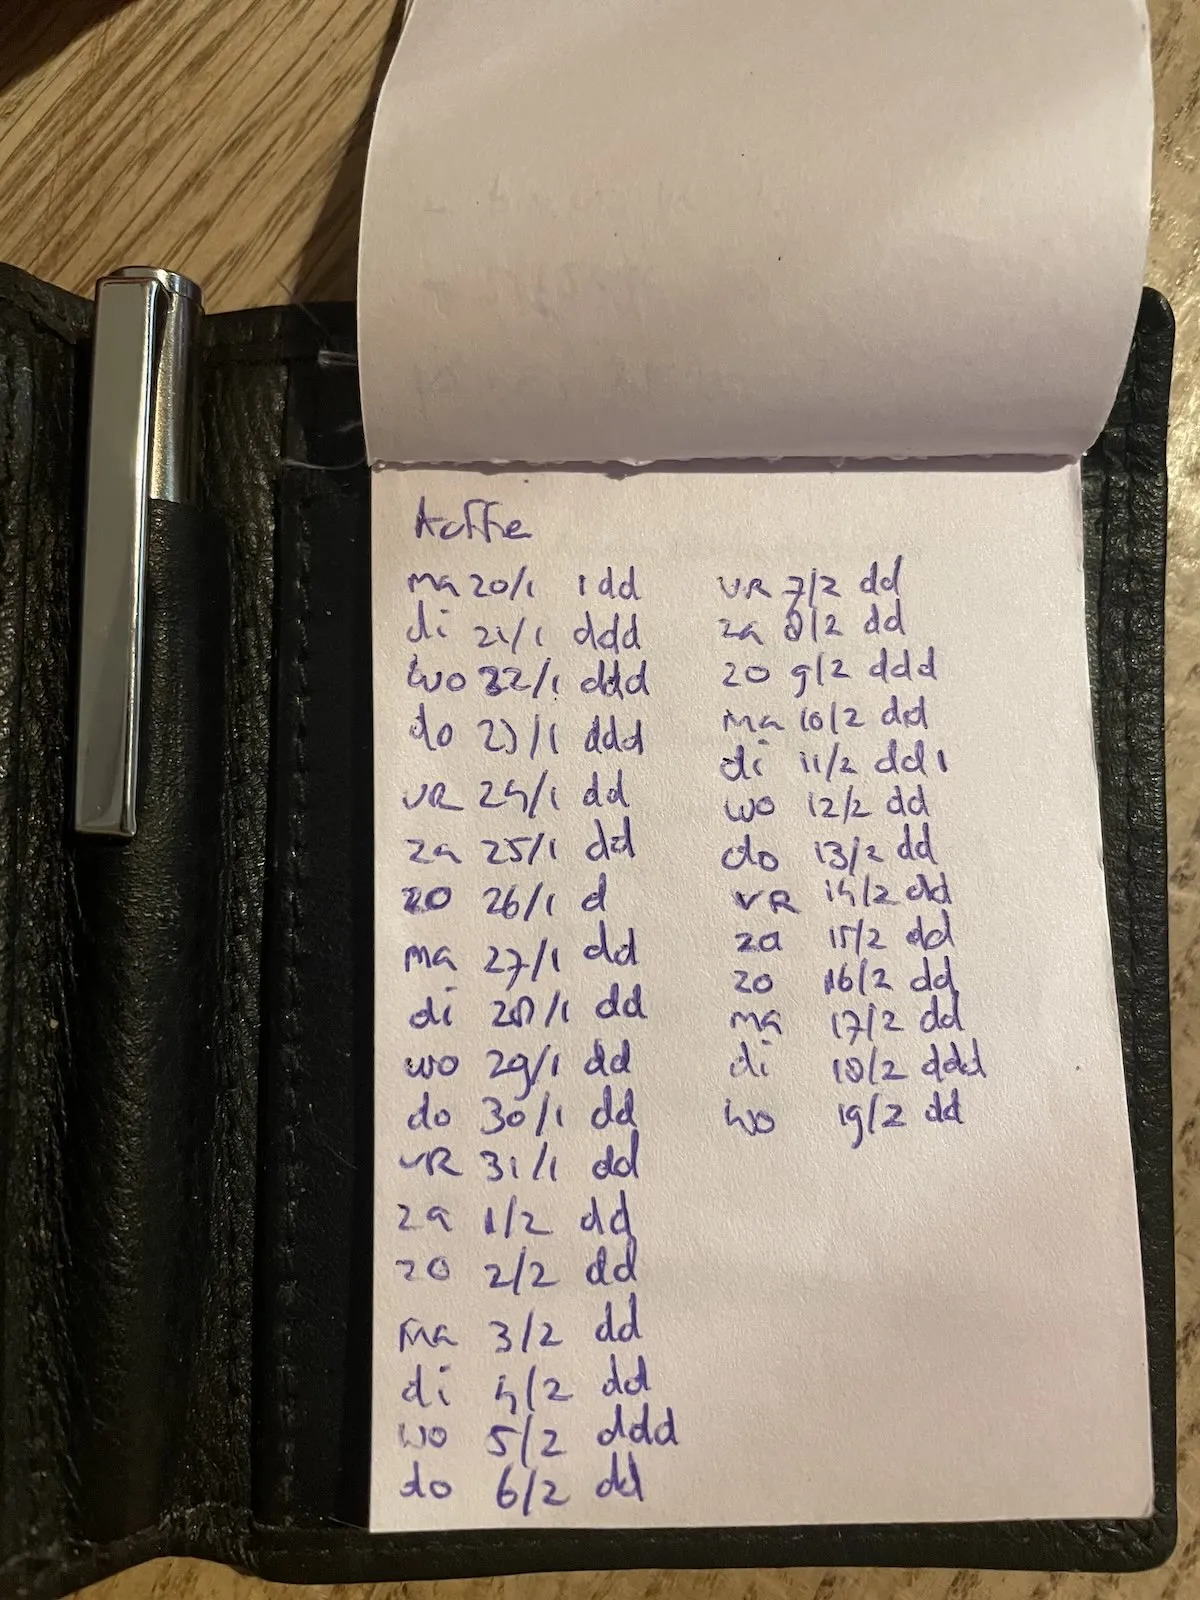 Koffie
ma 20/1 1dd
di 21/1 ddd
wo 22/1 ddd
do 23/1 ddd
VR 24/1 dd
za 25/1 dd
zo 26/1 d
ma 27/1 dd
di 28/1 dd
wo 29/1 dd
do 30/1 dd
VR 31/1 dd
za 1/2 dd
zo 2/2 dd
ma 3/2 dd
di 4/2 dd
wo 5/2 ddd
do 6/2 dd
VR 7/2 dd
za 8/2 dd
zo 9/2 ddd
ma 10/2 dd
di 11/2 dd1
wo 12/2 dd
do 13/2 dd
VR 14/2 dd
za 15/2 dd
zo 16/2 dd
ma 17/2 dd
di 18/2 ddd
wo 19/2 dd